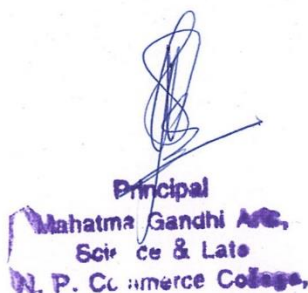 Principal
Mahatma Gandhi Arts,
Science & Late
N. P. Commerce College